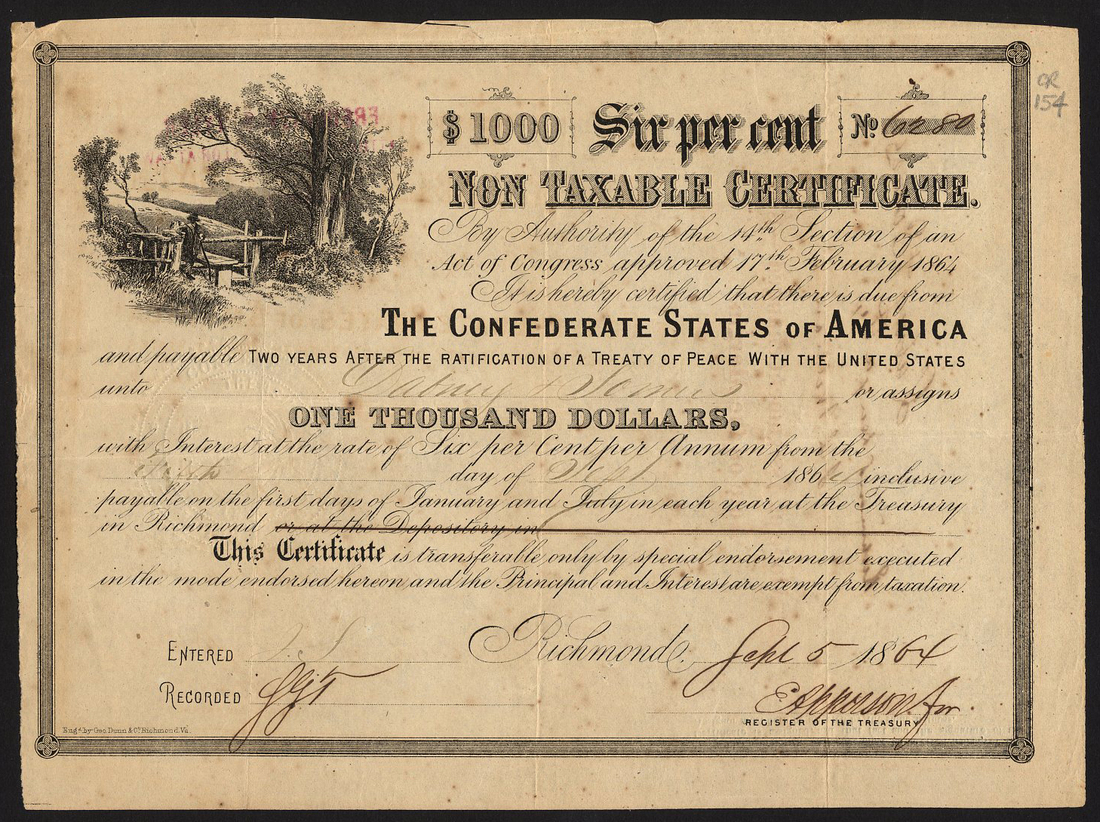 CR
154
$1000 Six per cent No 6280
NON TAXABLE CERTIFICATE.
By Authority of the 14th Section of an
Act of Congress approved 17th February 1864
It is hereby certified that there is due from
THE CONFEDERATE STATES OF AMERICA
and payable TWO YEARS AFTER THE RATIFICATION OF A TREATY OF PEACE WITH THE UNITED STATES
unto or assigns
ONE THOUSAND DOLLARS,
with Interest at the rate of Six per Cent per Annum from the
day of 186 inclusive
payable on the first days of January and July in each year at the Treasury
in Richmond or at the Depository in
This Certificate is transferable only by special endorsement executed
in the mode endorsed hereon and the Principal and Interest are exempt from taxation.
ENTERED
Richmond, Sept 5 1864
RECORDED
REGISTER OF THE TREASURY
Engd. by Geo. Dunn & Co. Richmond Va.